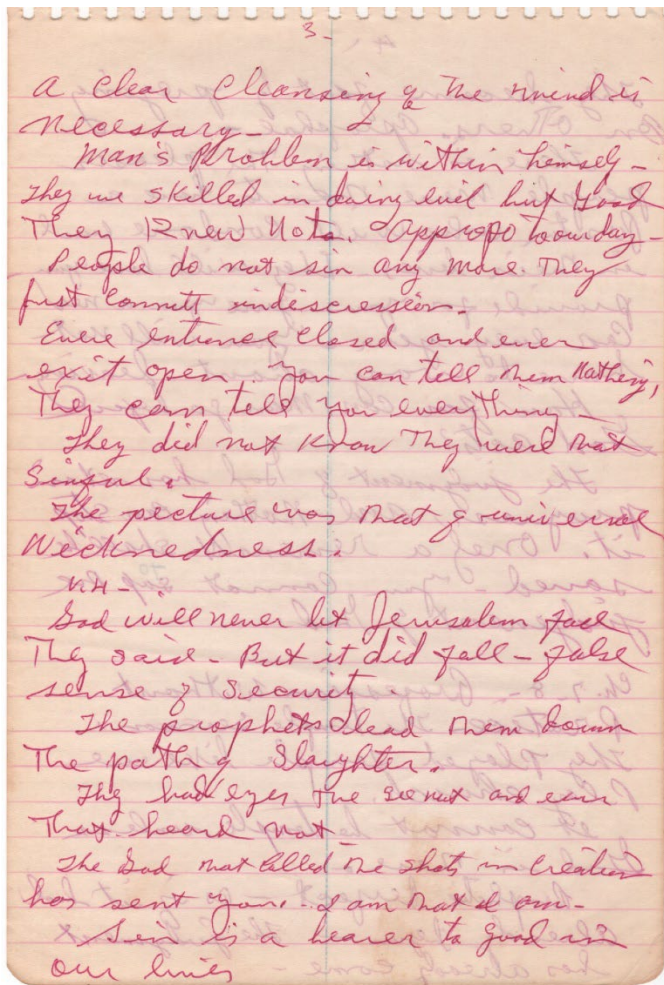 3-
A clear Cleansing of the mind is
necessary-
Man's Problem is within himself-
They are skilled in doing evil but Good
They Knew Not. Appropo to our day-
People do not sin any more. They
just Committ indiscression.
Every entrance Closed and ever
exit open. You can tell them Nothing,
They can tell you everything-
They did not Know They were that
Sinful.
The picture was that of universal
Wicknedness.
God will never let Jerusalem fall
They said- But it did fall- false
sense of Security
The prophets lead them down
The path of Slaughter.
They had eyes the see not and ears
That heard not-
The God that Called the shots in Creation
has sent you. I am that I am-
Sin is a to good in
our lives